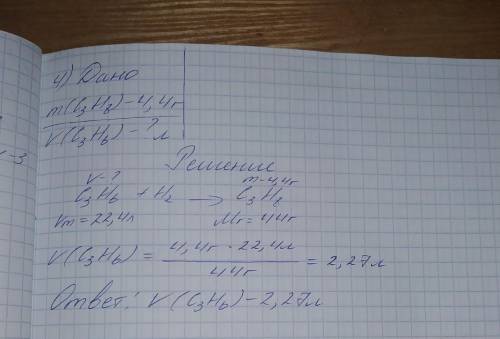 4) Дано
m(C₃H₈) - 4,4г
V(C₃H₆) - ? л
Решение
V - ? m - 4,4г
C₃H₆ + H₂ → C₃H₈
Vm = 22,4л Mr = 44г
V(C₃H₆) = 4,4г · 22,4л / 44г = 2,27л
Ответ: V(C₃H₆) - 2,27л